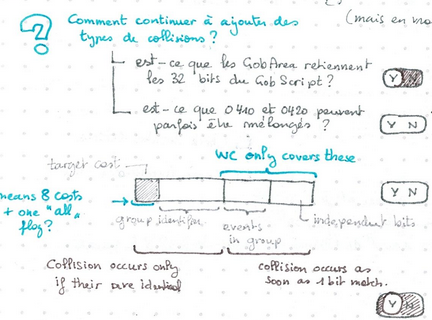 ?
Comment continuer à ajouter des
types de collisions ?
(mais en mo
est-ce que les GobArea retiennent
les 32 bits du GobScript ?
Y N
est-ce que 0x10 et 0x20 peuvent
parfois être mélangés ?
Y N
WC only covers these
target cost
Y N
means 8 costs
+ one "all"
flag ?
group identifier
events
in group
independent bits
Collision occurs only
if their are identical
collision occurs as
soon as 1 bit match.
Y N